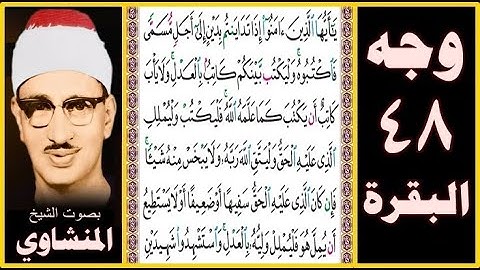 وجه
٤٨
البقرة
يَٰٓأَيُّهَا ٱلَّذِينَ ءَامَنُوٓاْ إِذَا تَدَايَنتُم بِدَيۡنٍ إِلَىٰٓ أَجَلٖ مُّسَمّٗى
فَٱكۡتُبُوهُۚ وَلۡيَكۡتُب بَّيۡنَكُمۡ كَاتِبُۢ بِٱلۡعَدۡلِۚ وَلَا يَأۡبَ
كَاتِبٌ أَن يَكۡتُبَ كَمَا عَلَّمَهُ ٱللَّهُۚ فَلۡيَكۡتُبۡ وَلۡيُمۡلِلِ
ٱلَّذِي عَلَيۡهِ ٱلۡحَقُّ وَلۡيَتَّقِ ٱللَّهَ رَبَّهُۥ وَلَا يَبۡخَسۡ مِنۡهُ شَيۡـٔٗاۚ
فَإِن كَانَ ٱلَّذِي عَلَيۡهِ ٱلۡحَقُّ سَفِيهًا أَوۡ ضَعِيفًا أَوۡ لَا يَسۡتَطِيعُ
أَن يُمِلَّ هُوَ فَلۡيُمۡلِلۡ وَلِيُّهُۥ بِٱلۡعَدۡلِۚ وَٱسۡتَشۡهِدُواْ شَهِيدَيۡنِ
بصوت الشيخ
المنشاوي